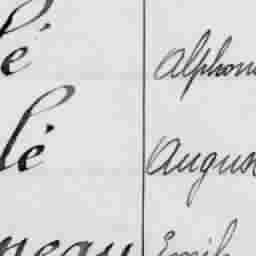 é Alphons
lé Augus
neau Emile